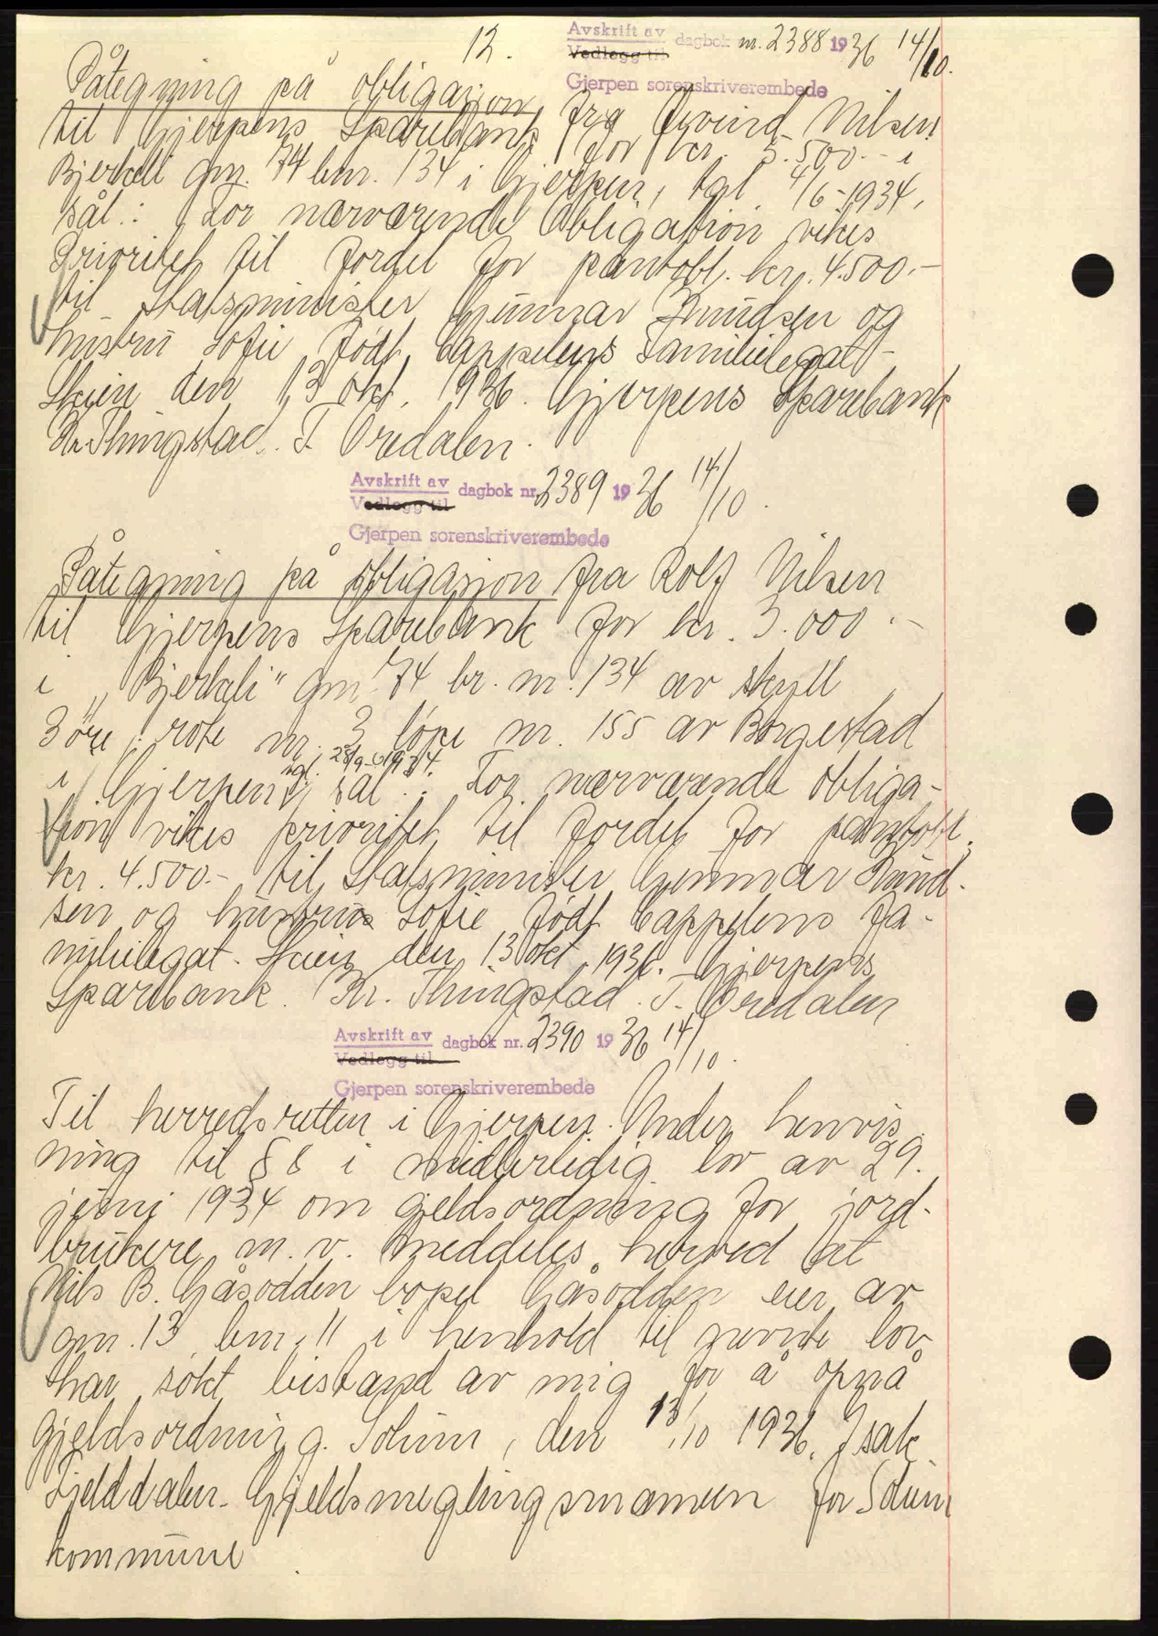 12.
Avskrift av
Vedlegg til dagbok nr. 2388 1936 14/10.
Gjerpen sorenskriverembede
Påtegning på obligasjon fra Øyvind Nilsen
til Gjerpens Sparebank for kr. 5.500.- i
Bjerkeli gnr. 74 bnr. 134 i Gjerpen, tgl. 4/6-1934,
sål.: For nærværende Obligation vikes
Prioritet til fordel for pantobl. kr. 4.500.-
til Statsminister Gunnar Knudsen og
hustru Sofie født Cappelens Familielegat.-
Skien den 13 okt. 1936. Gjerpens Sparebank
Kr. Thingstad. T. Oredalen.
Avskrift av
Vedlegg til dagbok nr. 2389 1936 14/10.
Gjerpen sorenskriverembede
Påtegning på obligasjon fra Rolf Nilsen
til Gjerpens Sparebank for kr. 3.000.-
i "Bjerkeli" gnr. 74 br. nr. 134 av skyll
3 øre, rote nr. 3 løpe nr. 155 av Borgestad
i Gjerpen, tgl. 28/9-1934. sål.: For nærværende obliga-
tion vikes prioritet til fordel for pantobl.
kr. 4.500.- til Statsminister Gunnar Knud-
sen og hustru Sofie født Cappelens Fa-
milielegat. Skien den 13 okt. 1936. Gjerpens
Sparebank. Kr. Thingstad. T. Oredalen
Avskrift av
Vedlegg til dagbok nr. 2390 1936 14/10.
Gjerpen sorenskriverembede
Til herredsretten i Gjerpen. Under henvis-
ning til § 8 i midlertidig lov av 29.
juni 1934 om gjeldsordning for jord-
brukere m.v. meddeles herved at
Nils B. Gåsodden bopel Gåsodden eier av
gnr. 13 bnr. 11 i henhold til nevnte lov
har søkt bistand av mig for å opnå
gjeldsordning. Solum, den 13/10 1936. Isak
Fjelddalen. Gjeldsmeglingsmannen for Solum
kommune